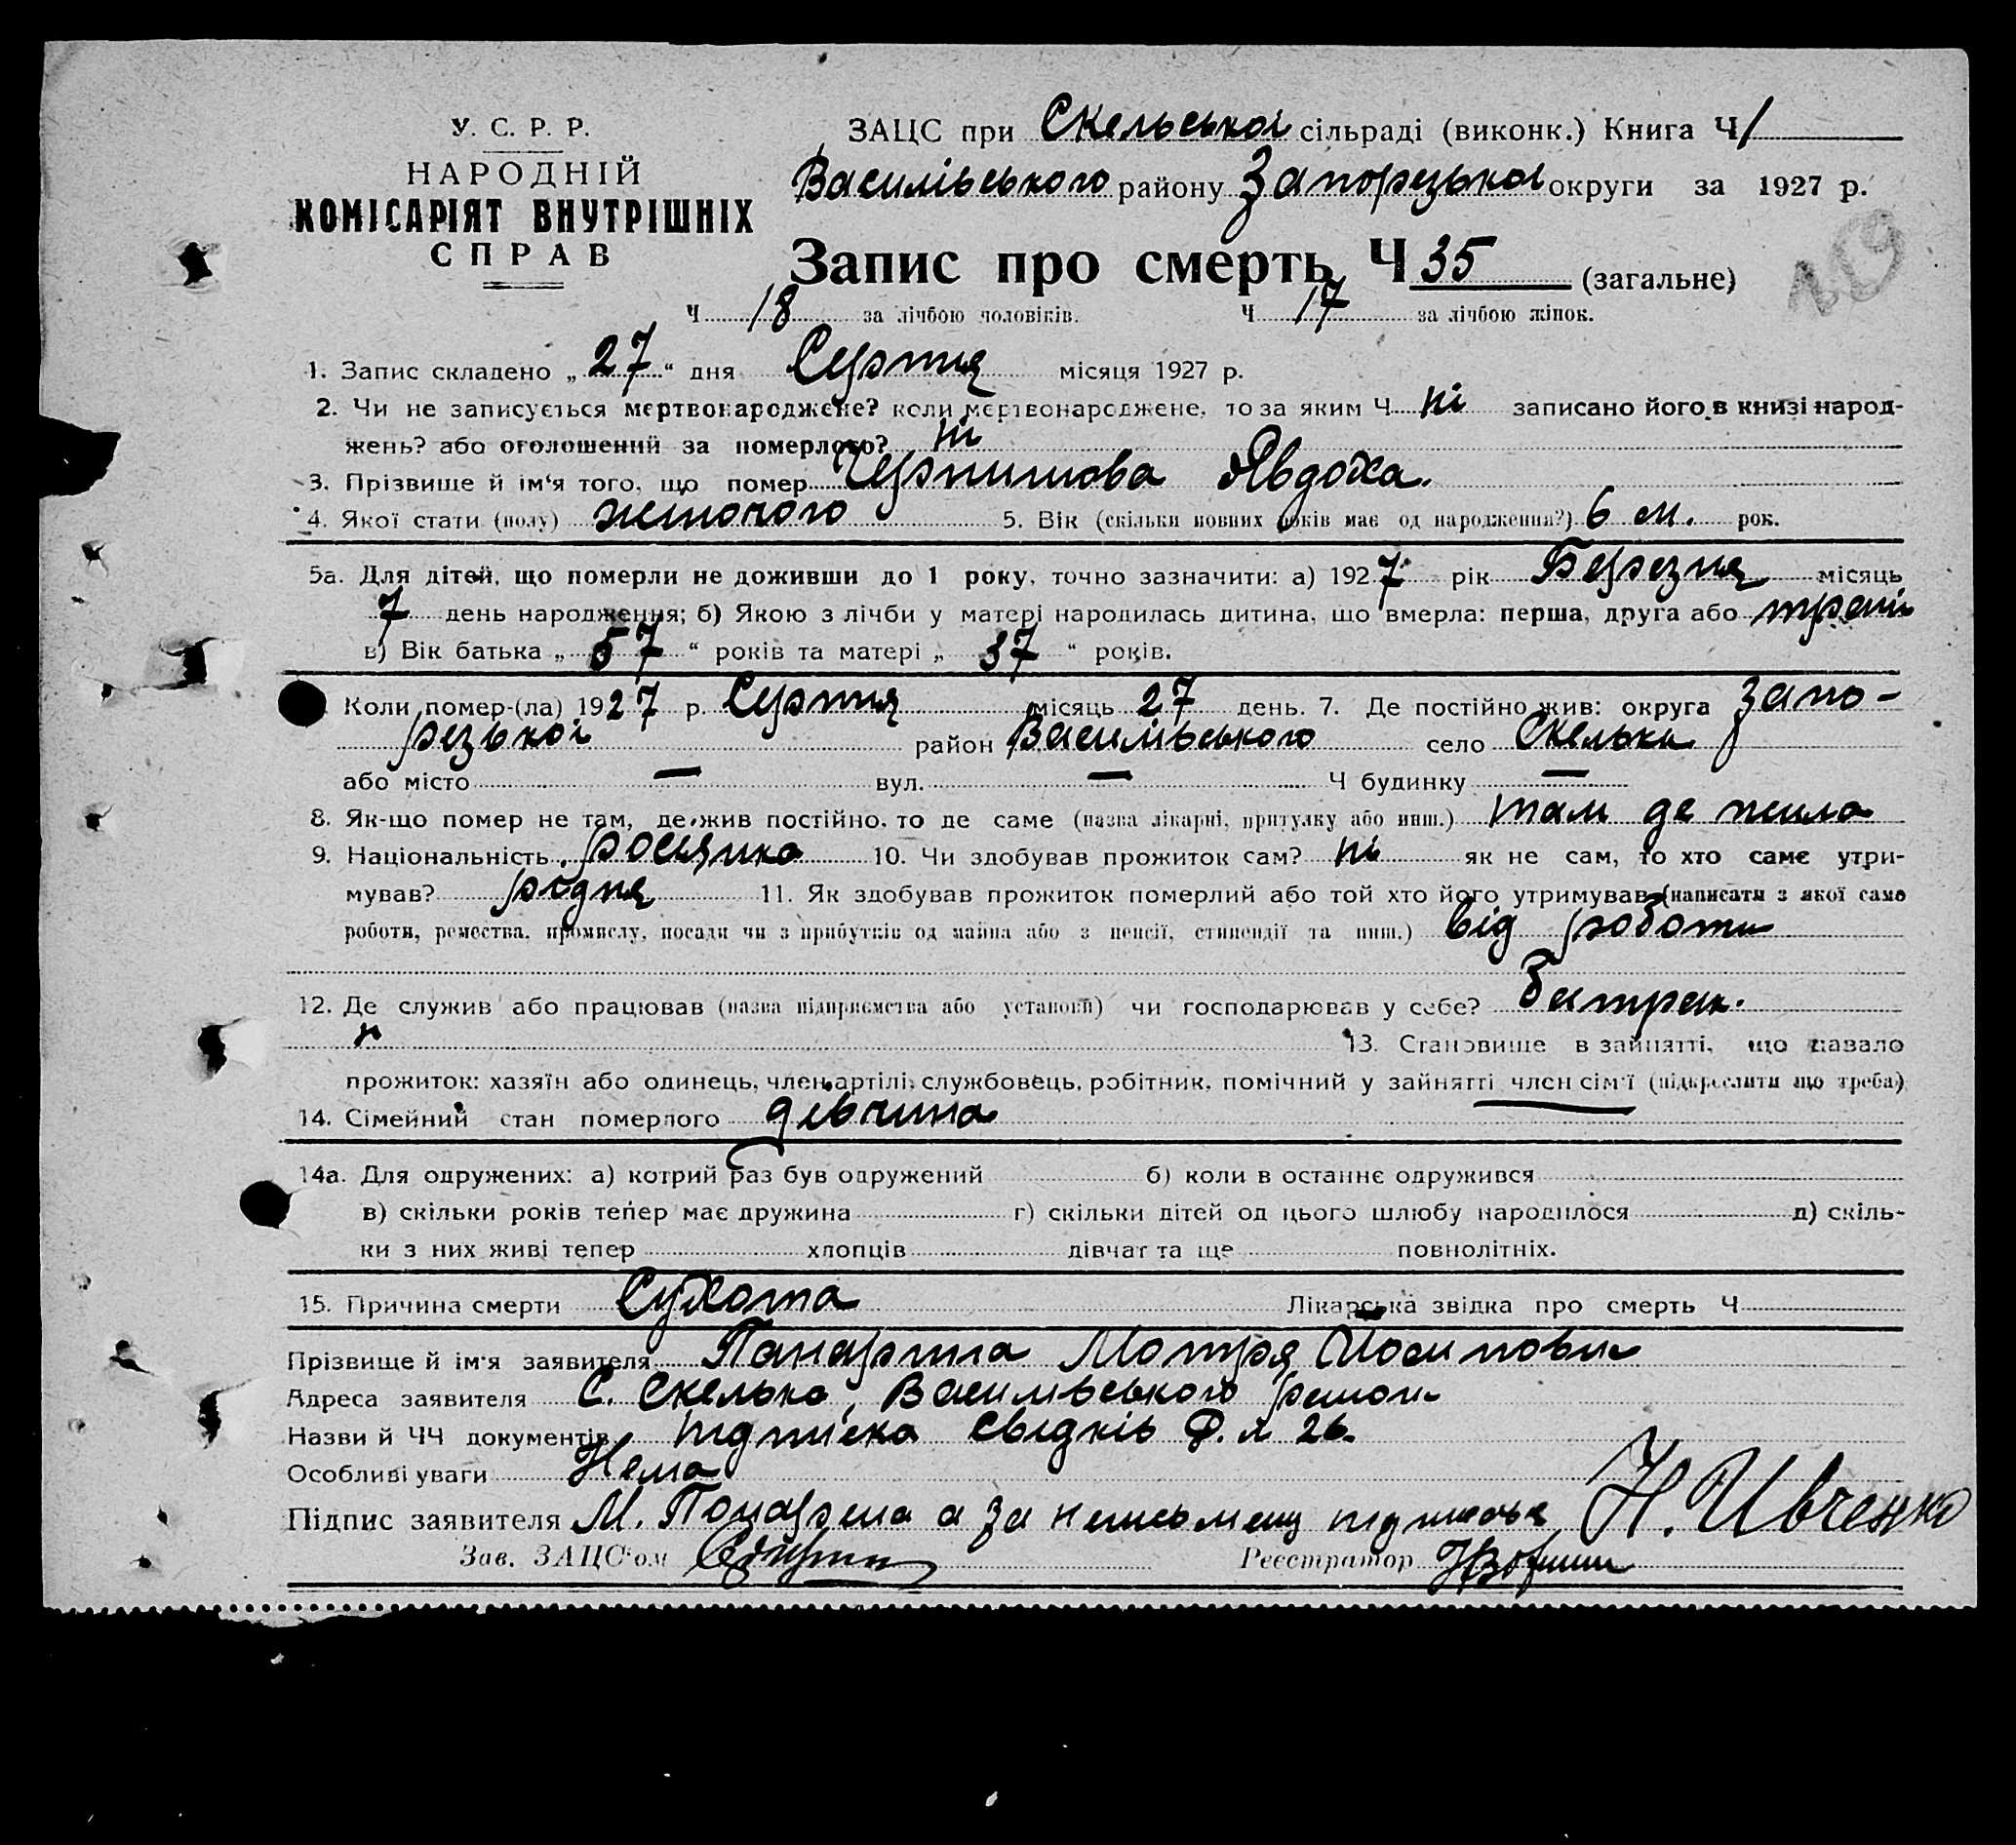 У. С. Р. Р.
НАРОДНІЙ
КОМІСАРІЯТ ВНУТРІШНІХ
СПРАВ
ЗАЦС при Скельської сільраді (виконк.) Книга Ч 1
Василівського району Запорезької округи за 1927 р.
Запис про смерть Ч 35 (загальне)
Ч 18 за лічбою чоловіків. Ч 17 за лічбою жінок.
1. Запис складено „27" дня Серпня місяця 1927 р.
2. Чи не записується мертвонароджене? коли мертвонароджене, то за яким Ч ні записано його в книзі народ-
жень? або оголошений за померлого? ні
3. Прізвище й ім'я того, що помер Явдоха.
4. Якої стати (полу) жиночого 5. Вік (скільки повних років має од народження?) 6 м. рок.
5а. Для дітей, що померли не доживши до 1 року, точно зазначити: а) 1927 рік Березня місяць
7 день народження; б) Якою з лічби у матері народилась дитина, що вмерла: перша, друга або
в) Вік батька „57" років та матері „37" років.
Коли помер-(ла) 1927 р. Серпня місяць 27 день. 7. Де постійно жив: округа Запо-
резької район Василівського село Скелька
або місто — вул. — Ч будинку —
8. Як-що помер не там, де жив постійно, то де саме (назва лікарні, притулку або инш.) там де жила
9. Національність росиянка 10. Чи здобував прожиток сам? ні як не сам, то хто саме утри-
мував? родня 11. Як здобував прожиток померлий або той хто його утримував (написати з якої само
роботи, ремества, промислу, посади чи з прибутків од майна або з пенсії, стипендії та инш.) від роботи
12. Де служив або працював (назва підприємства або установи) чи господарював у себе? Батрак.
13. Становище в занятті, що давало
прожиток: хазяїн або одинець, член артілі, службовець, робітник, помічний у зайнятті член сім'ї (підкреслити що треба)
14. Сімейний стан померлого дівчина
14а. Для одружених: а) котрий раз був одружений б) коли в останнє одружився
в) скільки років тепер має дружина г) скільки дітей од цього шлюбу народилося д) скіль-
ки з них живі тепер хлопців дівчат та ще повнолітніх.
15. Причина смерти Сухота Лікарська звідка про смерть Ч —
Прізвище й ім'я заявителя Мотря
Адреса заявителя С. Скелька, Василівського район
Назви й ЧЧ документів підписка свідків Ф. № 26.
Особливі уваги Нема
Підпис заявителя М. а за неписьмену Н. Ивченко
Зав. ЗАЦС'ом Реєстратор